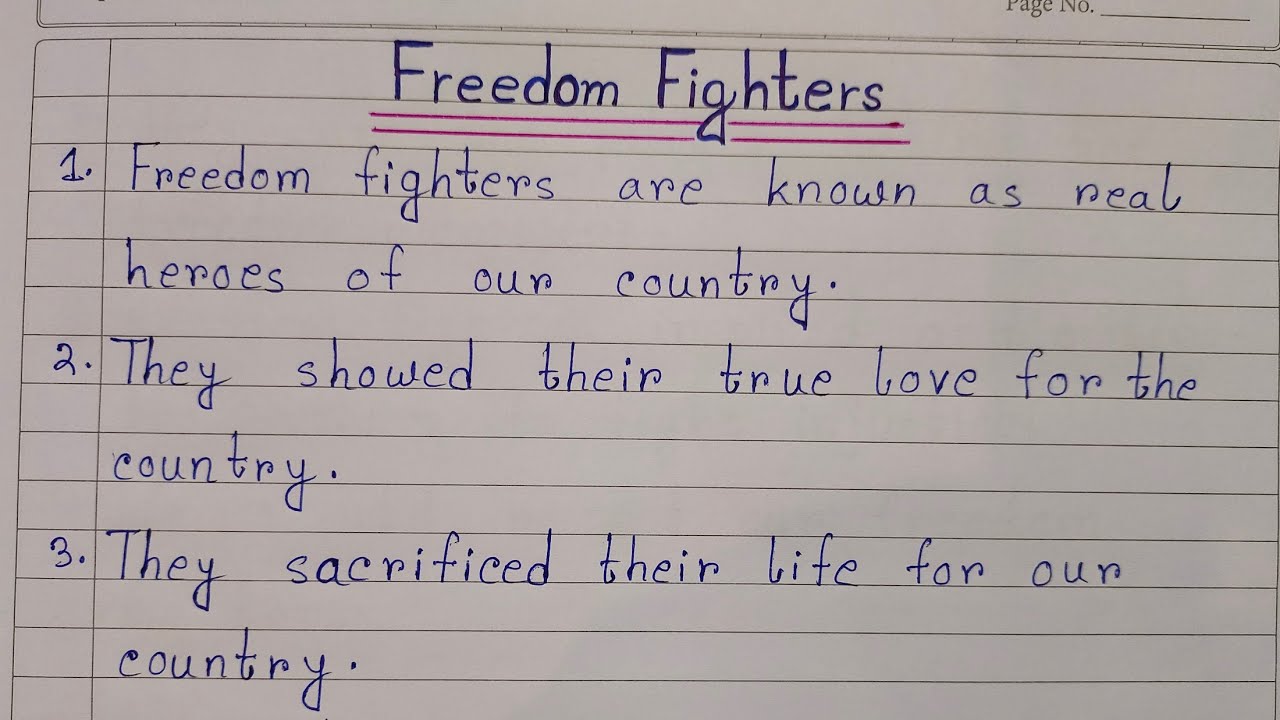 Page No.
Freedom Fighters
1. Freedom fighters are known as real
heroes of our country.
2. They showed their true love for the
country.
3. They sacrificed their life for our
country.